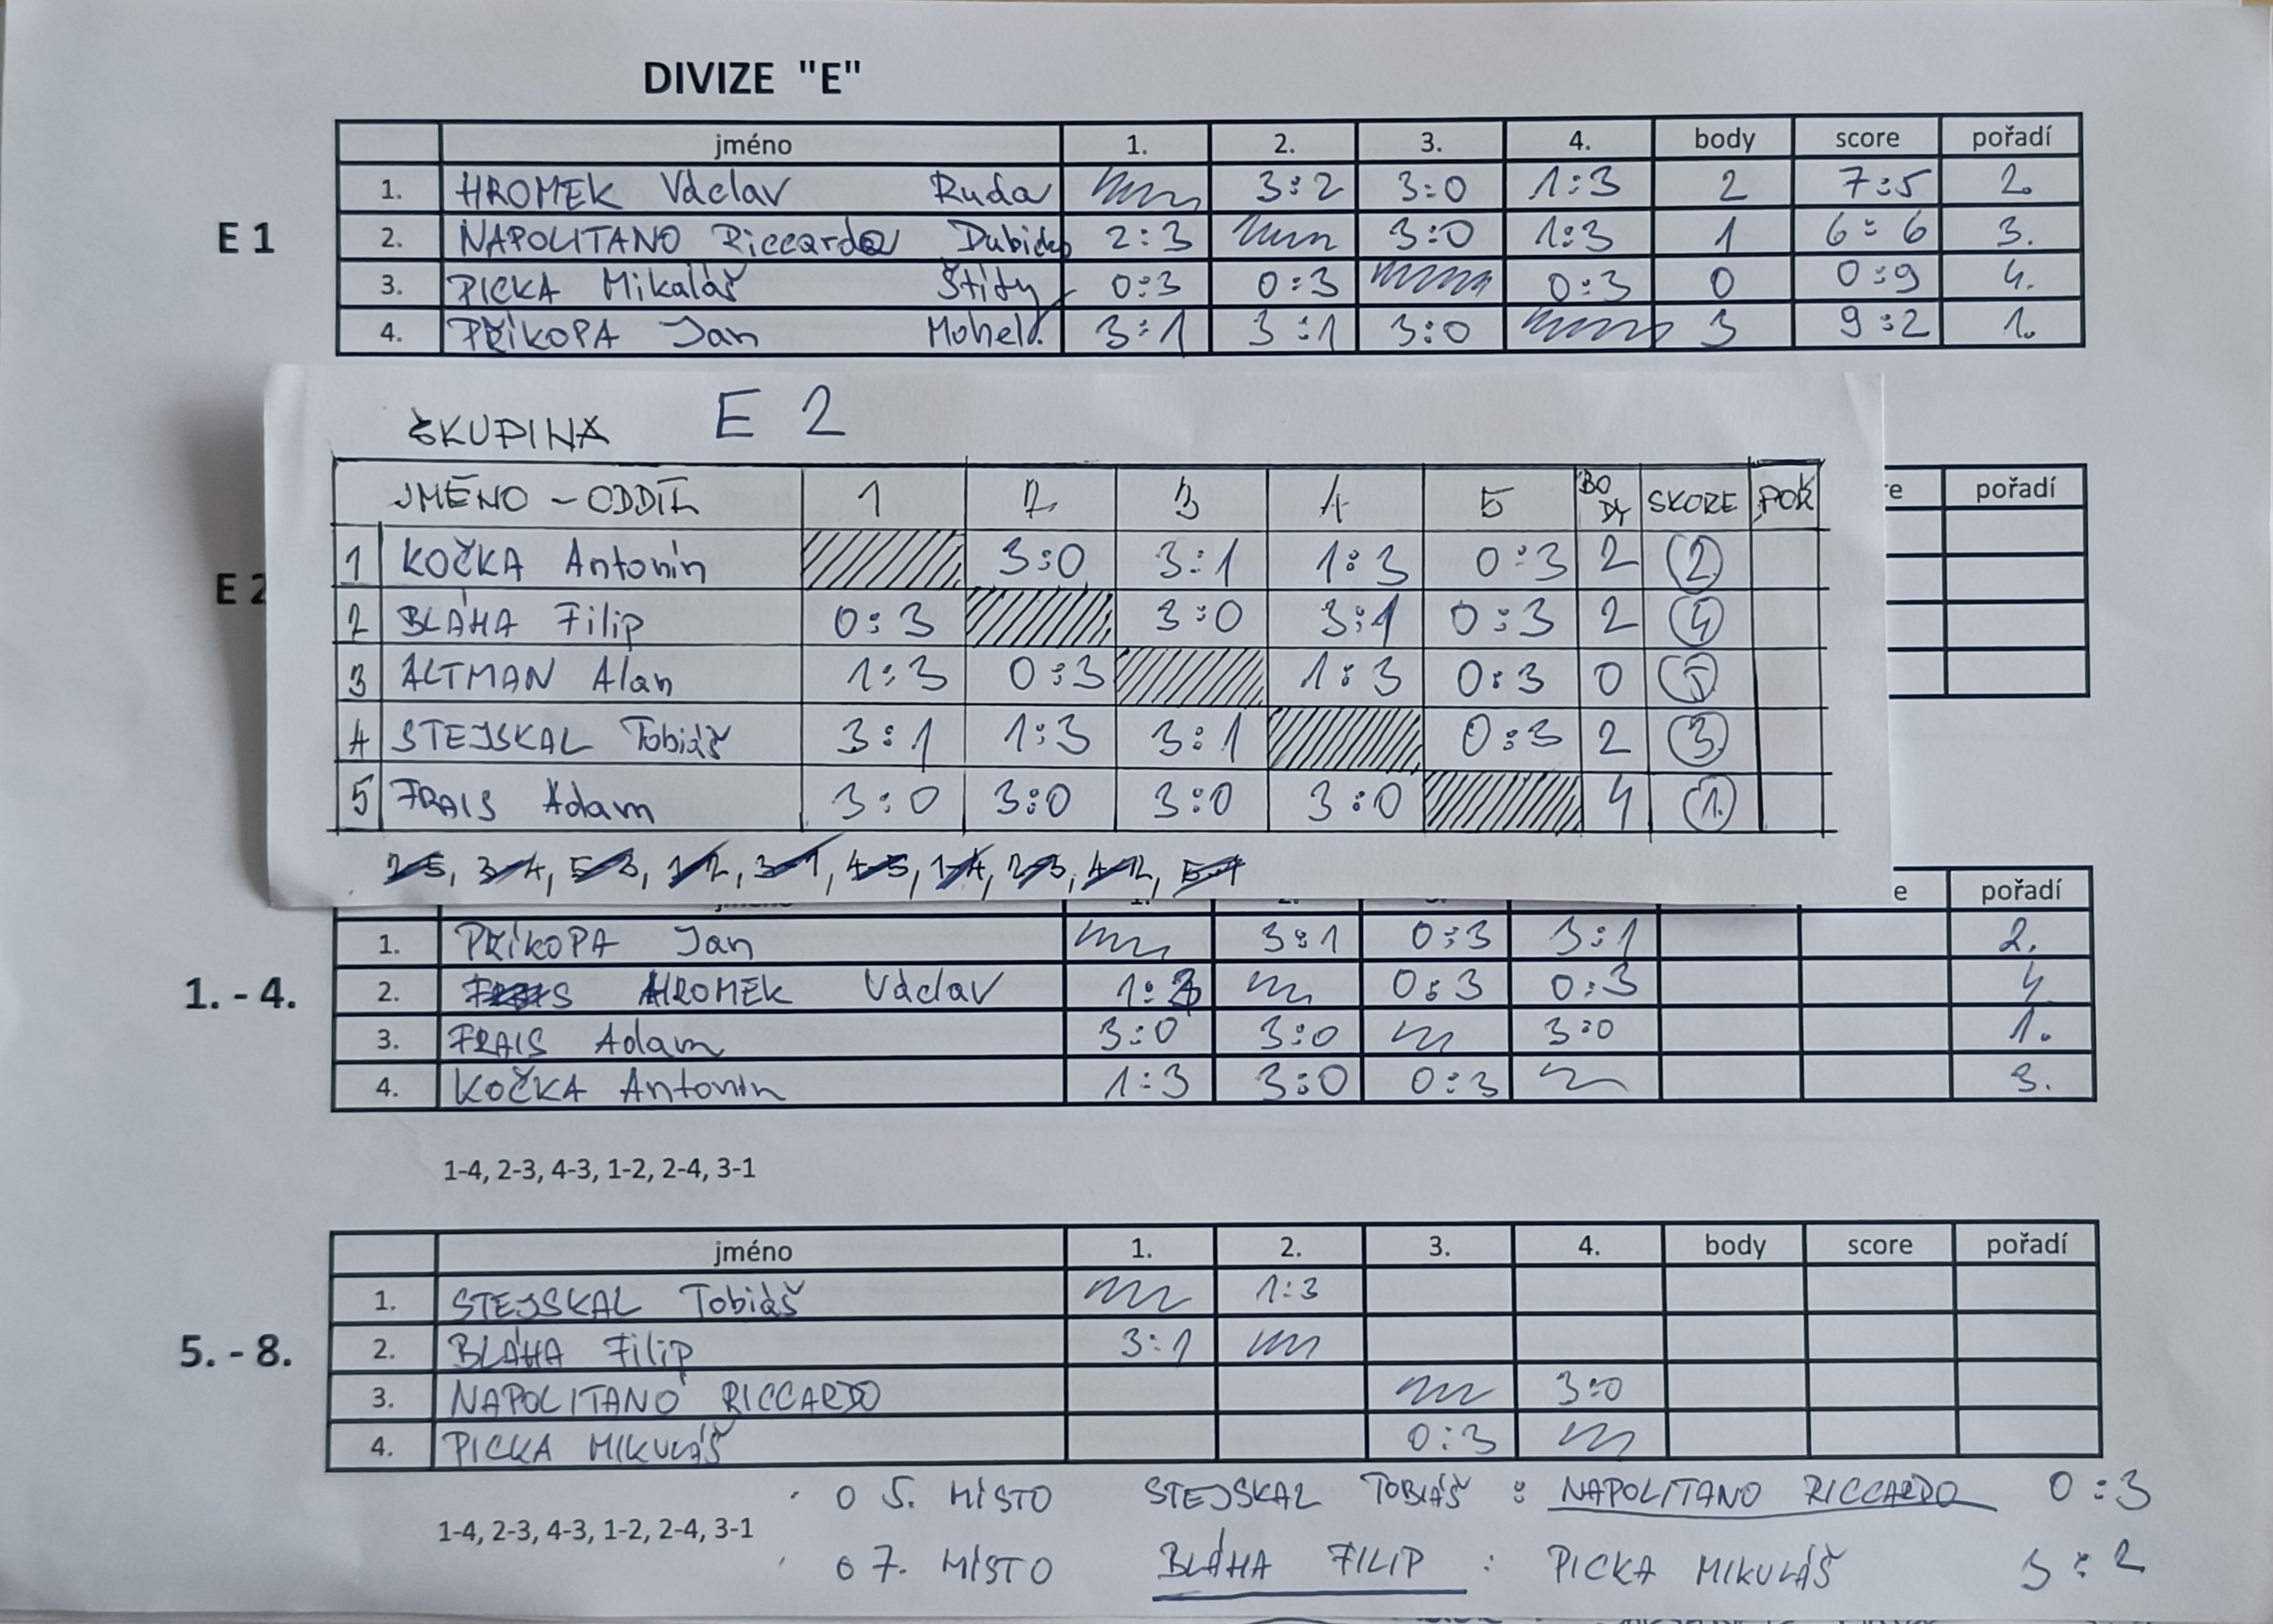 DIVIZE "E"
jméno 1. 2. 3. 4. body score pořadí
1. HROMEK Václav Ruda 3:2 3:0 1:3 2 7:5 2.
E 1
2. NAPOLITANO Riccardo 2:3 3:0 1:3 1 6:6 3.
3. PICKA Mikaláš Štíty 0:3 0:3 0:3 0 0:9 4.
4. PŘÍKOPA Jan Mohel. 3:1 3:1 3:0 3 9:2 1.
SKUPINA E 2
JMÉNO - ODDÍL 1 2 3 4 5 BODY SKORE POŘ
re pořadí
1 KOČKA Antonín 3:0 3:1 1:3 0:3 2 2
E 2
2 BLÁHA Filip 0:3 3:0 3:1 0:3 2 4
3 ALTMAN Alan 1:3 0:3 1:3 0:3 0 5
4 STEJSKAL Tobiáš 3:1 1:3 3:1 0:3 2 3
5 FRAIS Adam 3:0 3:0 3:0 3:0 4 1.
2-5, 3-4, 5-3, 1-2, 3-1, 4-5, 1-4, 2-3, 4-2, 5-1
e pořadí
1. PŘÍKOPA Jan 3:1 0:3 3:1 2.
1. - 4.
2. HROMEK Václav 1:3 0:3 0:3 4
3. FRAIS Adam 3:0 3:0 3:0 1.
4. KOČKA Antonín 1:3 3:0 0:3 3.
1-4, 2-3, 4-3, 1-2, 2-4, 3-1
jméno 1. 2. 3. 4. body score pořadí
1. STEJSKAL Tobiáš 1:3
5. - 8.
2. BLÁHA Filip 3:1
3. NAPOLITANO RICCARDO 3:0
4. PICKA MIKULÁŠ 0:3
O 5. MÍSTO STEJSKAL TOBIÁŠ : NAPOLITANO RICCARDO 0:3
1-4, 2-3, 4-3, 1-2, 2-4, 3-1
O 7. MÍSTO BLÁHA FILIP : PICKA MIKULÁŠ 3:2